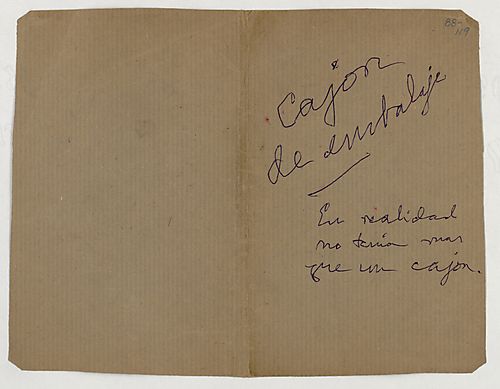 88-
119
Cajón
de embalaje
En realidad
no tenia mas
que un cajon.